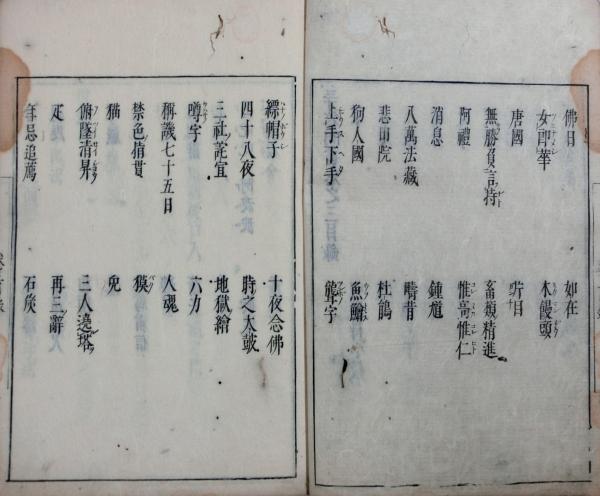 佛日　如在
女郎華　木饅頭
唐國　片目
無勝負言持　畜類精進
阿禮　惟喬惟仁
消息　鍾馗
八萬法藏　疇昔
悲田院　杜鵑
狗人國　魚鱠
上手下手　聾字
縹帽子　十夜念佛
四十八夜　時之太鼓
三社託宣　地獄繪
噂字　六力
稱譏七十五日　人魂
禁色指貫　獏
猫　兒
俯墜清昇　三人遶塔
疋　再三辭
年忌追薦　石炭